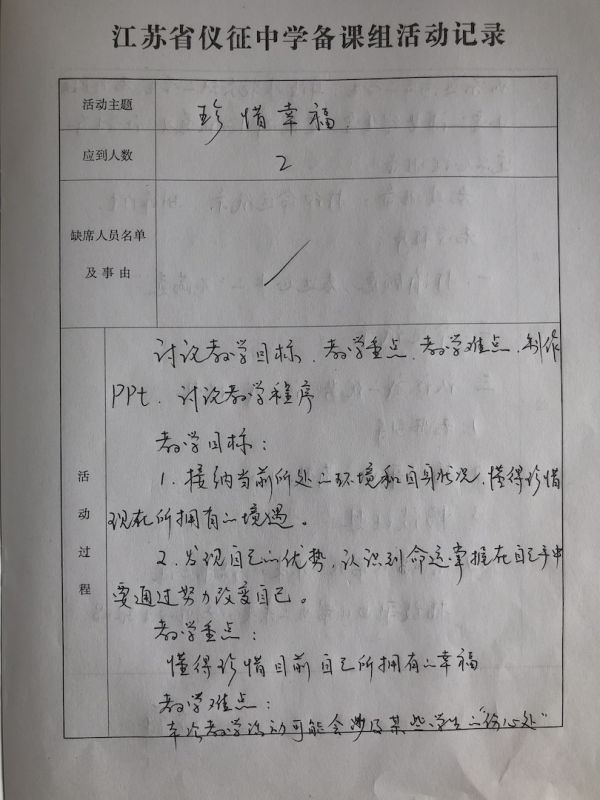 江苏省仪征中学备课组活动记录
活动主题 珍惜幸福
应到人数 2
缺席人员名单
及事由
活动过程
讨论教学目标、教学重点、教学难点、制作
PPt、讨论教学程序
教学目标:
1. 接纳当前所处的环境和自身状况,懂得珍惜
现在所拥有的境遇。
2. 发现自己的优势,认识到命运掌握在自己手中
要通过努力改变自己。
教学重点:
懂得珍惜目前自己所拥有的幸福
教学难点:
本次教学活动可能会涉及某些学生的“伤心处”